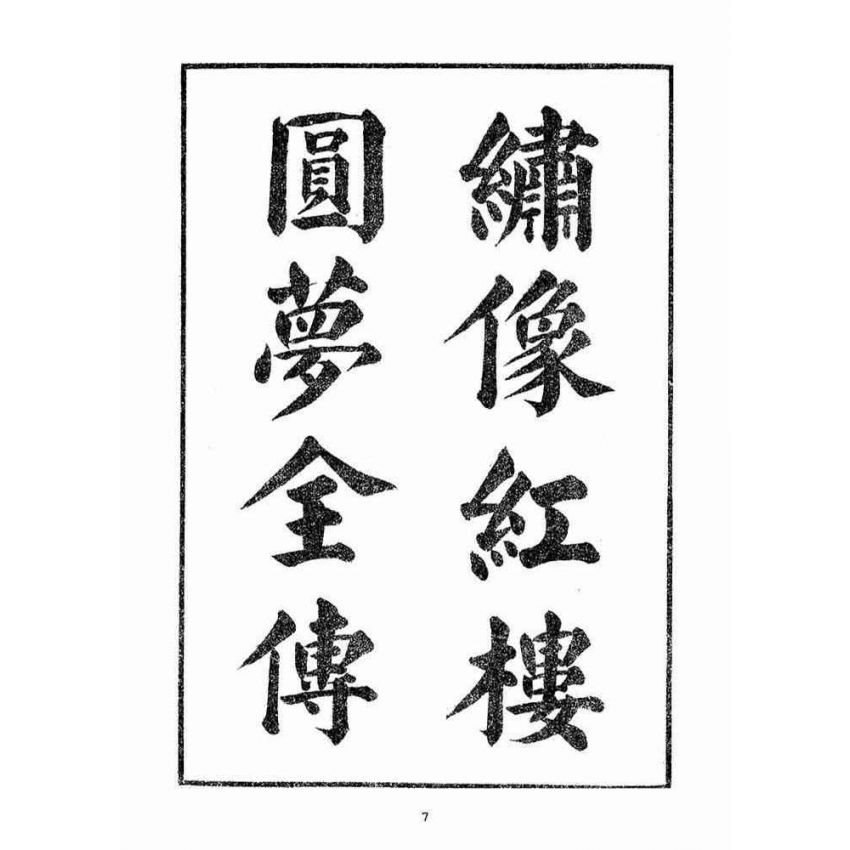 繡像紅樓
圓夢全傳
7